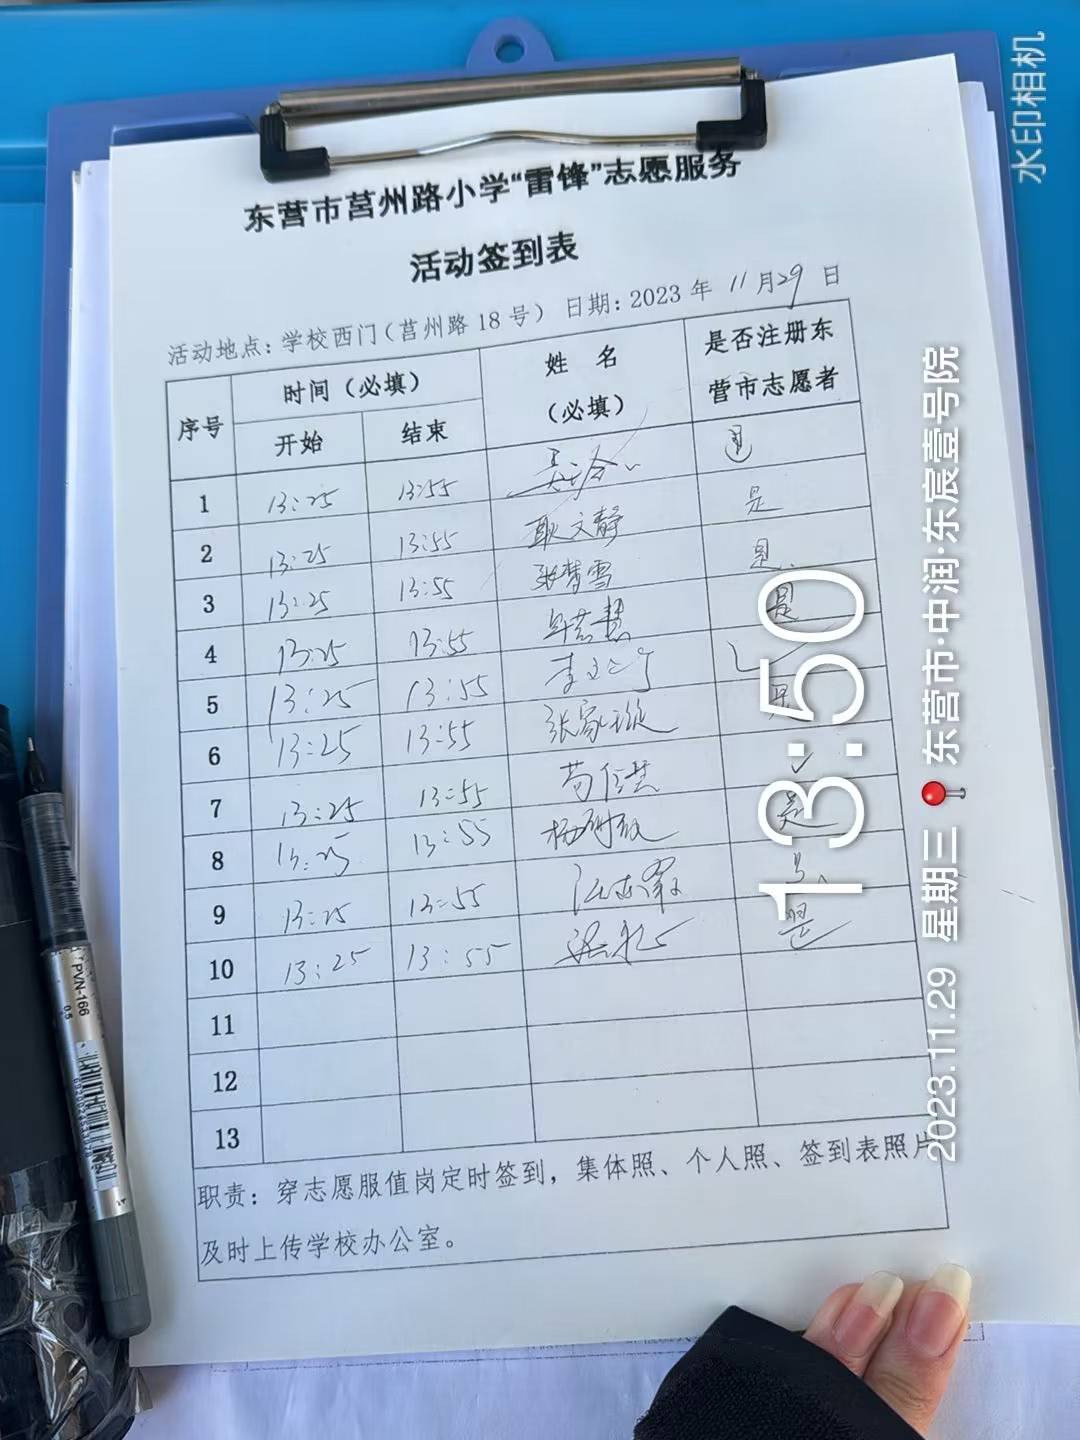 水印相机
东营市莒州路小学“雷锋”志愿服务
活动签到表
活动地点：学校西门（莒州路 18 号） 日期：2023 年 11 月 29 日
序号 时间（必填） 姓 名 （必填） 是否注册东营市志愿者
开始 结束
1 13:25 13:55 是
2 13:25 13:55 耿文静 是
3 13:25 13:55 张梦雪 是
4 13:25 13:55 是
5 13:25 13:55
6 13:25 13:55 张家璇 是
7 13:25 13:55
8 13:25 13:55 是
9 13:25 13:55
10 13:25 13:55 是
11
12
13
职责：穿志愿服值岗定时签到，集体照、个人照、签到表照片
及时上传学校办公室。
13:50
2023.11.29 星期三 东营市·中润·东宸壹号院
PVN-166
0.5